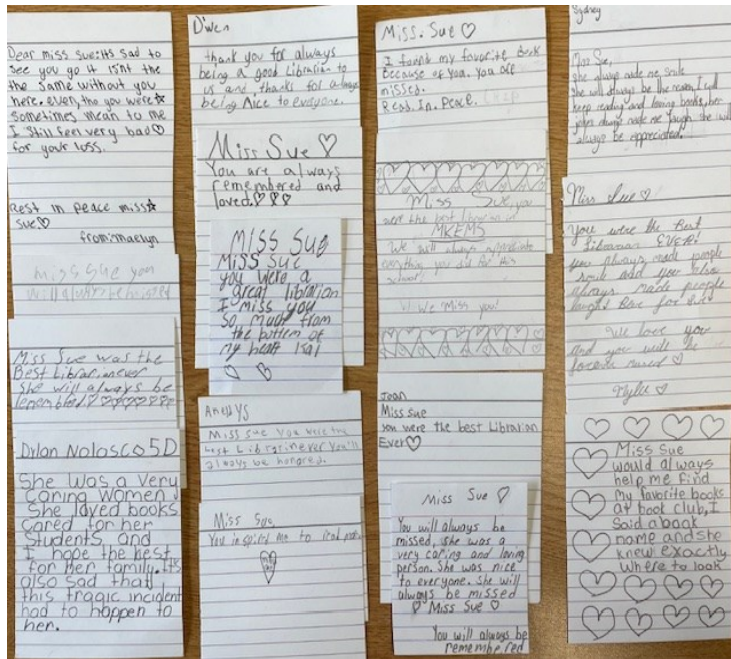 Dear miss sue: its sad to
see you go it isnt the
the same without you
here. even, tho you were
sometimes mean to me
I still feel very bad
for your loss.
Rest in peace miss
sue
from: maelyn
miss sue you
will always be missed
Miss Sue was the
Best Librarian ever
She will always be
remembered
Dylan Nolasco 5D
She was a very
caring women
She loved books
cared for her
Students, and
I hope the best
for her family. It's
also sad that
this tragic incident
had to happen to
her.
D'wen
thank you for always
being a good Librarian to
us and thanks for always
being Nice to everyone.
Miss Sue
You are always
remembered and
loved.
MISS SUE
MISS SUE
you were a
great libration
I miss you
So much from
the bottom of
my heart
Anellys
Miss sue you were the
best Librarian ever You'll
always be honored.
Miss Sue,
You inspired me to read
Miss. Sue
I found my favorite book
because of you. You are
missed.
Read. In. Peace.
Miss Sue, you
were the best librarian in
MKEMS
We will always appreciate
everything you did for this
school!
We Miss you!
Joan
Miss sue
you were the best Librarian
Ever
Miss Sue
You will always be
missed, she was a
very caring and loving
person. She was nice
to everyone. She will
always be missed
Miss Sue
You will always be
remembered
Sydney
Miss Sue,
she always made me smile
she will always be the reason, I will
keep reading and loving books, her
jokes always made me laugh. she will
always be appreciated.
Miss Sue
You were the Best
Librarian EVER!
you always made people
smile and you also
always made people
laugh!
We love you
and you will be
forever missed
Nylee
Miss Sue
would always
help me find
My favorite books
at book club, I
said a book
name and she
knew exactly
where to look